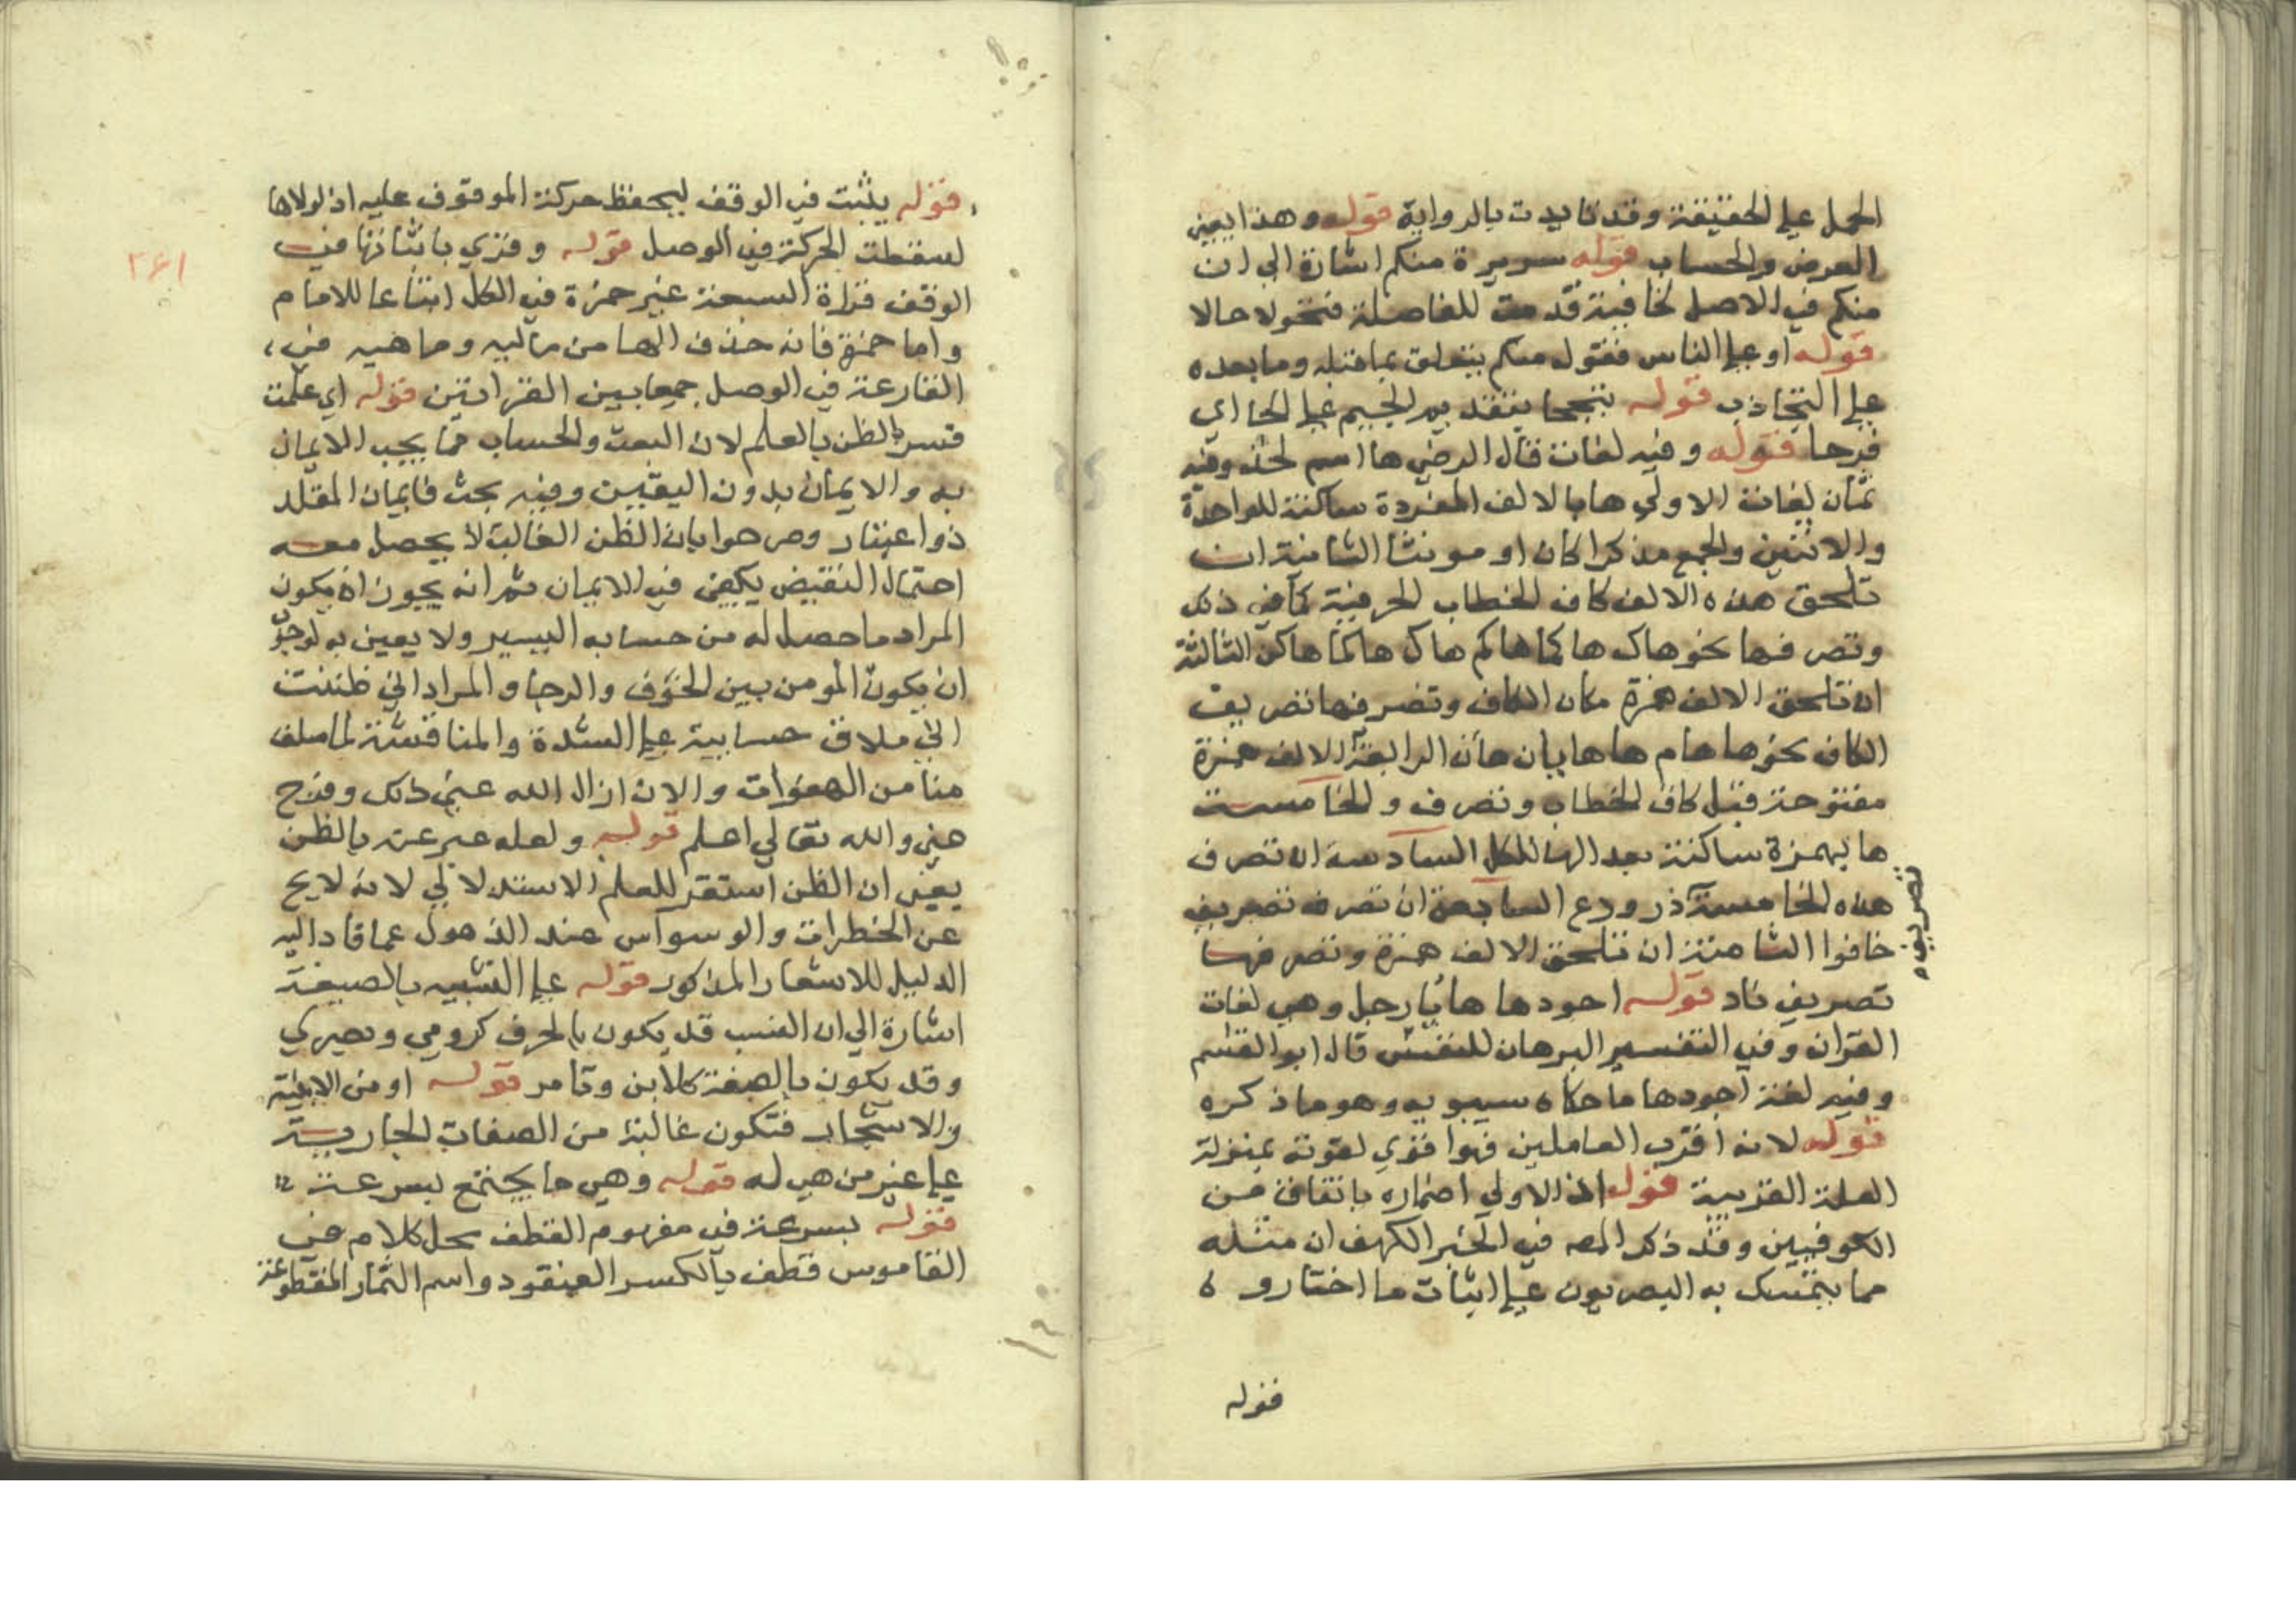 الحمل علي الحقيقة وقد تايدت بالرواية قوله وهذا يعني
العرض والحساب قوله سريرة منكم اشارة الي ان
منكم في الاصل لخافية قدمت للفاصلة فتحولا حالا
قوله او علي الناس فقوله منكم يتعلق بما قبله وما بعده
علي التجاذب قوله تبجحا بتقديم الجيم علي الحا اي
فرحا قوله وفيه لغات قال الرضي ها اسم لخذ وفيه
ثمان لغات الاولي ها بالالف المفردة ساكنة للواحدة
والاثنين والجمع مذكرا كان او مونثا الثانية ان
تلحق هذه الالف كاف الخطاب الحرفية كما في ذلك
وتصرفها نحو هاك هاكما هاكم هاك هاكما هاكن الثالثة
ان تلحق الالف همزة مكان الكاف وتصرفها تصريف
الكاف نحو ها هام ها هايان هأن الرابعة الالف همزة
مفتوحة قبل كاف الخطاب وتصرف والخامسة
ها بهمزة ساكنة بعد الها للكل السادسة ان تصرف
هذه الخامسة ذر ودع السابعة ان تصرفه تصريف
تصريف
خافوا الثامنة ان تلحق الالف همزة وتصرفها
تصريف ناد قوله اجودها هاء يا رجل وهي لغات
القران وفي التفسير البرهان للنفسي قال ابو القسم
وفيه لغة اجودها ما حكاه سيبويه وهو ما ذكره
قوله لانه اقرب العاملين فهو اقوي لقوته بمنزلة
العلة القريبة قوله اذ الاولي اضماره باتفاق من
الكوفيين وقد ذكر المص في اخر الكهف ان مثله
مما يتمسك به البصريون علي اثبات ما اختاروه
قوله
قوله يثبت في الوقف ليحفظ حركة الموقوف عليه اذ لولاها
لسقطت الحركة في الوصل قوله وقري باثباتها في
٢٦١
الوقف قراة السبعة غير حمزة في الكل اتباعا للامام
واما حمزة فانه حذف الها من ماليه وما هيه في
القارعة في الوصل جمعا بين القراتين قوله اي علمت
فسر الظن بالعلم لان البعث والحساب مما يجب الايمان
به والايمان بدون اليقين وفيه بحث فايمان المقلد
ذو اعتبار وصرحوا بان الظن الغالب لا يحصل معه
احتمال النقيض يكفي في الايمان ثم انه يجوز ان يكون
المراد ما حصل له من حسابه اليسير ولا يعين به لوجو
ان يكون المومن بين الخوف والرجا والمراد اني ظننت
اني ملاق حسابيه علي الشدة والمناقشة لما سلف
منا من الهفوات والان ازال الله عني ذلك وفرج
عني والله تعالي اعلم قوله ولعله عبر عنه بالظن
يعني ان الظن استقر للعلم الاستدلالي لانه لا يخ
عن الخطرات والوسواس عند الذهول عما قاد اليه
الدليل للاشعار المذكور قوله علي النسبه بالصيغة
اشارة الي ان النسب قد يكون بالحرف كرومي وبصري
وقد يكون بالصيغة كلابن وتامر قوله او من الابنية
والاشجار فتكون غالبة من الصفات الجارية
علي غير من هي له قوله وهي ما يجتمع بسرعة
قوله بسرعة في مفهوم القطف محل كلام في
القاموس قطف بالكسر العنقود واسم الثمار المقطوعة